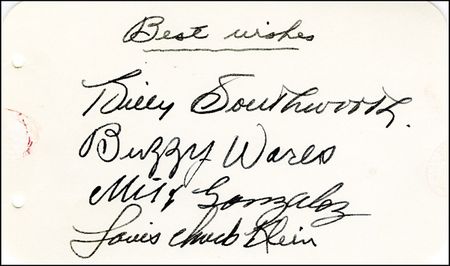 Best wishes
Billy Southworth.
Buzzy Wares
Mike Gonzalez
Louis Chuck Klein